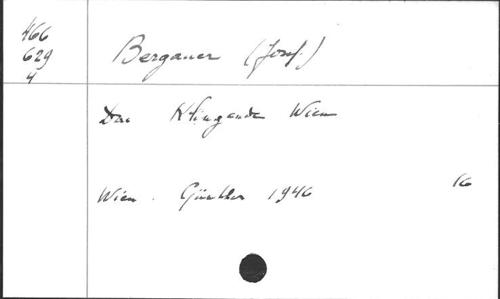 466
629
4
Bergauer (Josef.)
Das Klingende Wien
Wien. Günther 1946
16